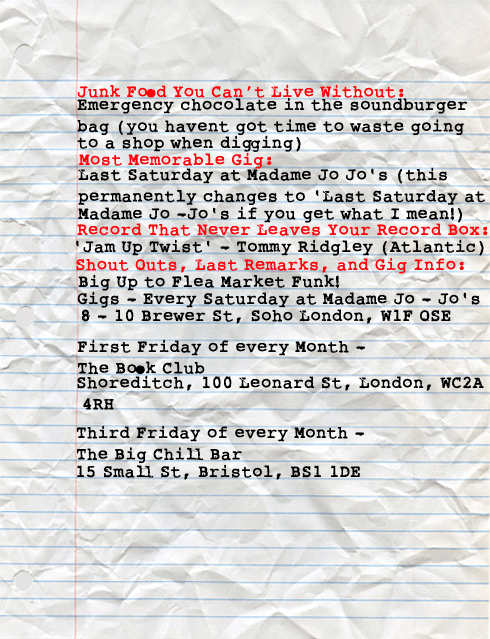 Junk Food You Can't Live Without:
Emergency chocolate in the soundburger
bag (you havent got time to waste going
to a shop when digging)
Most Memorable Gig:
Last Saturday at Madame Jo Jo's (this
permanently changes to 'Last Saturday at
Madame Jo -Jo's if you get what I mean!)
Record That Never Leaves Your Record Box:
'Jam Up Twist' - Tommy Ridgley (Atlantic)
Shout Outs, Last Remarks, and Gig Info:
Big Up to Flea Market Funk!
Gigs - Every Saturday at Madame Jo - Jo's
8 - 10 Brewer St, Soho London, W1F OSE
First Friday of every Month -
The Book Club
Shoreditch, 100 Leonard St, London, WC2A
4RH
Third Friday of every Month -
The Big Chill Bar
15 Small St, Bristol, BS1 1DE